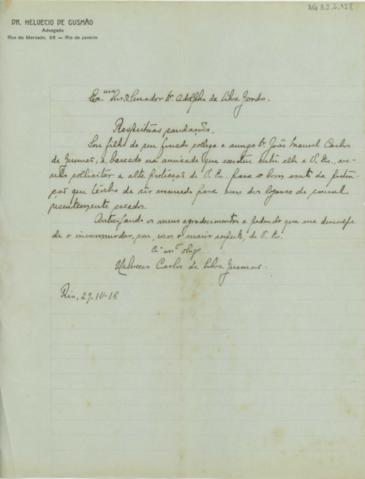 AG 82.2.128
DR. HELVECIO DE GUSMÃO
Advogado
Rua do Mercado, 38 — Rio de Janeiro
Exmo Snr. Senador Dr. Adolpho da Silva Gordo.
Respeitosas saudações.
Sou filho de seu finado collega e amigo Dr. João Manuel Carlos
de Gusmão, e, baseado na amizade que existiu entre elle e V. Ex.,
sollicitar a alta protecção de V. Ex. para o bom exito da
que tenho de ser nomeado para um dos logares de consul
recentemente creados.
Antecipando os meus agradecimentos e pedindo que me desculpe
de o incommodar, sou, com o maior respeito, de V. Ex.
Helvecio Carlos da Silva Gusmão.
Rio, 29-10-18